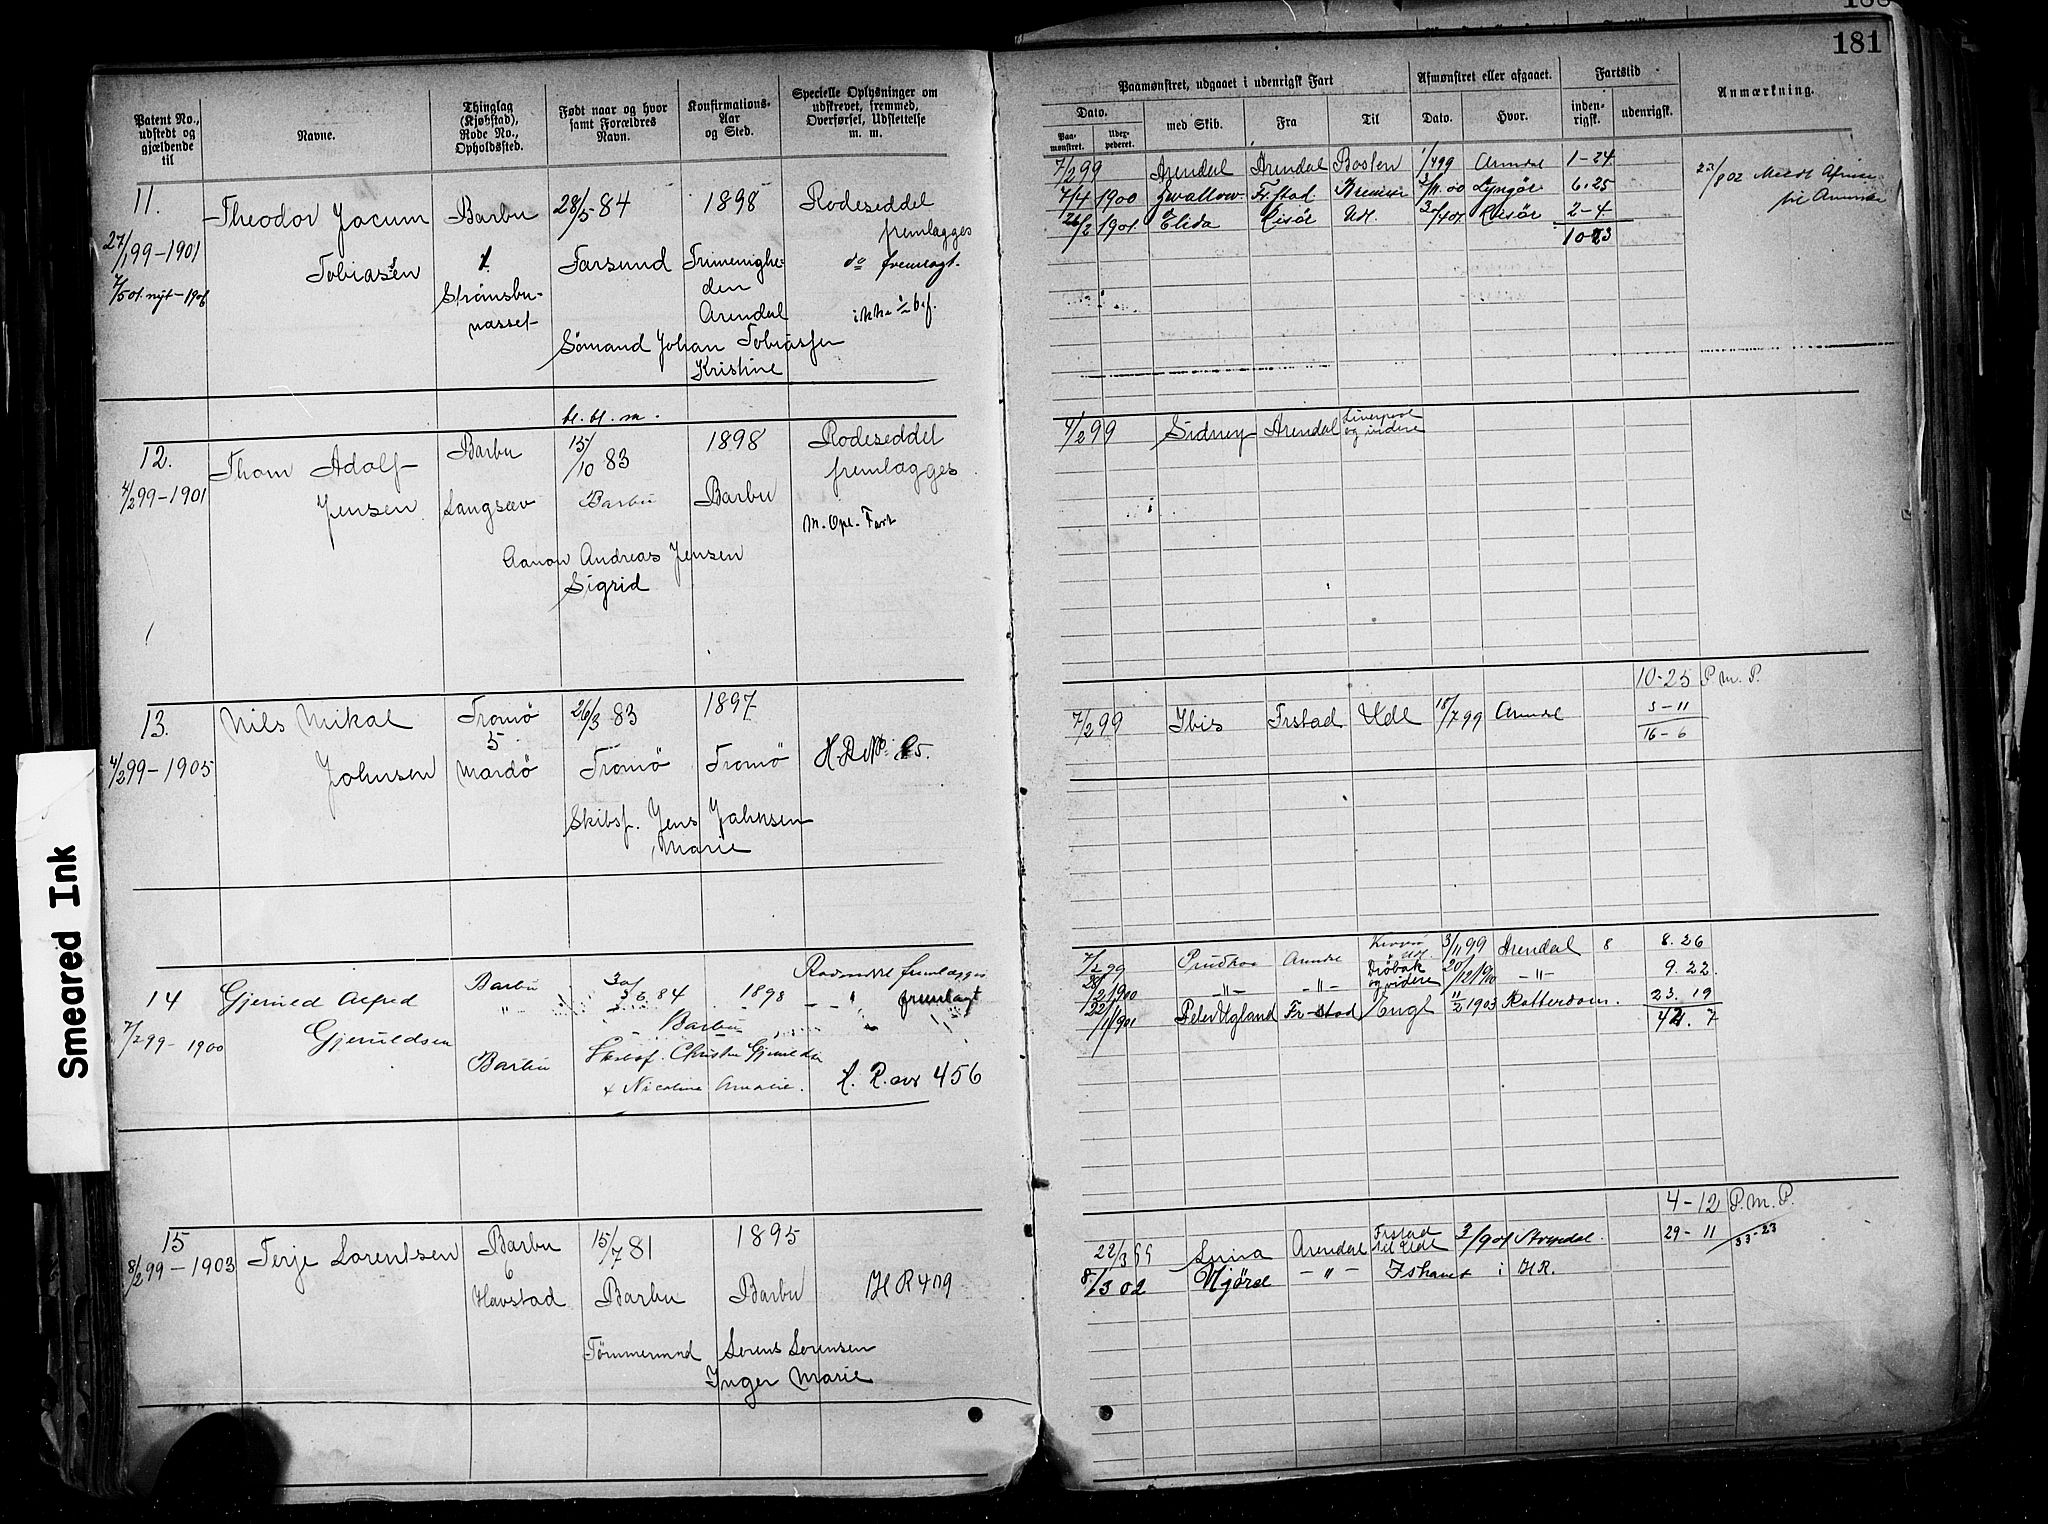 181
Patent No., udstedt og gjældende til
Navne.
Thinglag (Kjøbstad), Rode No., Opholdssted.
Født naar og hvor samt Forældres Navn.
Konfirmations-Aar og Sted.
Specielle Oplysninger om udskrevet, fremmed, Overførsel, Udslettelse m. m.
Paamønstret, udgaaet i udenrigsk Fart
Dato.
Paa-mønstret.
med Skib.
Fra
Til
Afmønstret eller afgaaet.
Dato.
Hvor.
Fartstid
inden-rigsk.
udenrigsk.
Anmærkning.
11.
27/1 99-1901
7/5 01. nyt-1906
Theodor Jocum
Tobiassen
Barbu
1.
Strømsbu-
nasset
28/5 84
Farsund
1898
Trinenighe-
den
Arendal
Rodeseddel
fremlægges
do fremlagt.
Sømand Johan Tobiassen
Kristine
7/2 99 Arendal Arendal Boston 1/4 99 Arendal 1-24
7/4 1900 Swallow Fr.stad Bremen 00 Lyngør 6-25
26/2 1901 Elida Risør Udl. Risør 2-4
10-23
12.
4/2 99-1901
Thom Adolf
Jensen
Barbu
Langsæv
15/10 83
Barbu
1898
Barbu
Rodeseddel
fremlægges
M. Opl. Fart
Aanon Andreas Jensen
Sigrid
4/2 99 Sidney Arendal Liverpool og videre
13.
4/2 99-1905
Nils Mikal
Johnsen
Tromø
5
Mardø
26/3 83
Tromø
1897
Tromø
Skibsf. Jens Johnsen
Marie
10-25 P. M. P.
7/2 99 Ibis Frstad Udl 18/7 99 Arendal 5-11
16-6
14
7/2 99-1900
Gjeruld Alfred
Gjeruldsen
Barbu
Barbu
84
Barbu
1898
fremlægges
fremlagt
Skibsf. Christen Gjeruldsen
+ Nicoline Amalie.
456
7/2 99 Prudhoe 3/11 99 Arendal 8 8. 26
28/2 1900 -"- -"- Drøbak og videre 20/12 1900 -"- 9. 22.
22/1 1901 Peder Ugland Fr-stad Engl 11/2 1903 Rotterdam. 23. 19
7
15
8/2 99-1903
Terje Lorentsen
Barbu
6
Havstad
15/7 81
Barbu
1895
Barbu
H R 409
Tømmermand Lorens Lorensen
Inger Marie
4-12 P. M. P.
22/3 99 Arendal Frstad til Udl Arendal. 29-11 33-23
8/3 02 Njørd -"- Ishavet i H.R.
Smeared Ink